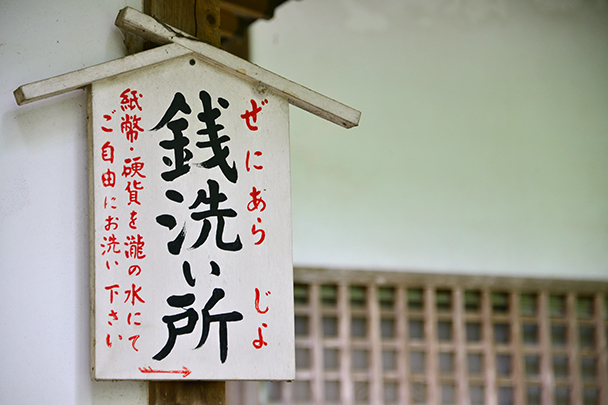 ぜにあらじよ
銭洗い所
紙幣・硬貨を瀧の水にて
ご自由にお洗い下さい